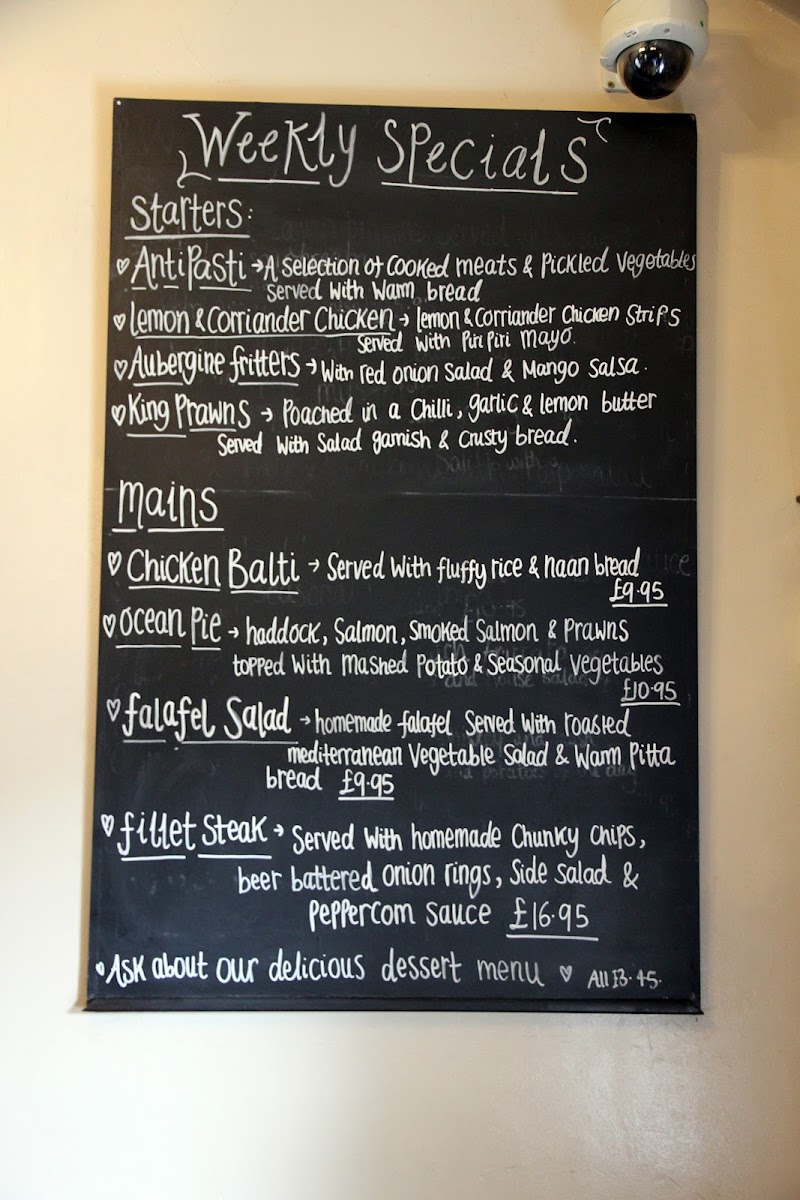 Weekly Specials
Starters:
♡ Antipasti → A Selection of Cooked meats & Pickled Vegetables
Served With Warm bread
♡ Lemon & Corriander Chicken → lemon & Corriander Chicken Strips
Served With Piri Piri Mayo.
♡ Aubergine fritters → With red onion Salad & Mango Salsa.
♡ King Prawns → Poached in a Chilli, garlic & lemon butter
Served With Salad garnish & Crusty bread.
Mains
♡ Chicken Balti → Served With fluffy rice & naan bread
£9.95
♡ Ocean Pie → haddock, Salmon, Smoked Salmon & Prawns
topped With Mashed Potato & Seasonal Vegetables
£10.95
♡ falafel Salad → homemade falafel Served With roasted
mediterranean Vegetable Salad & Warm Pitta
bread £9.95
♡ fillet Steak → Served With homemade Chunky Chips,
beer battered Onion rings, Side Salad &
Peppercorn Sauce £16.95
♡ Ask about our delicious dessert menu ♡ All £3.45.